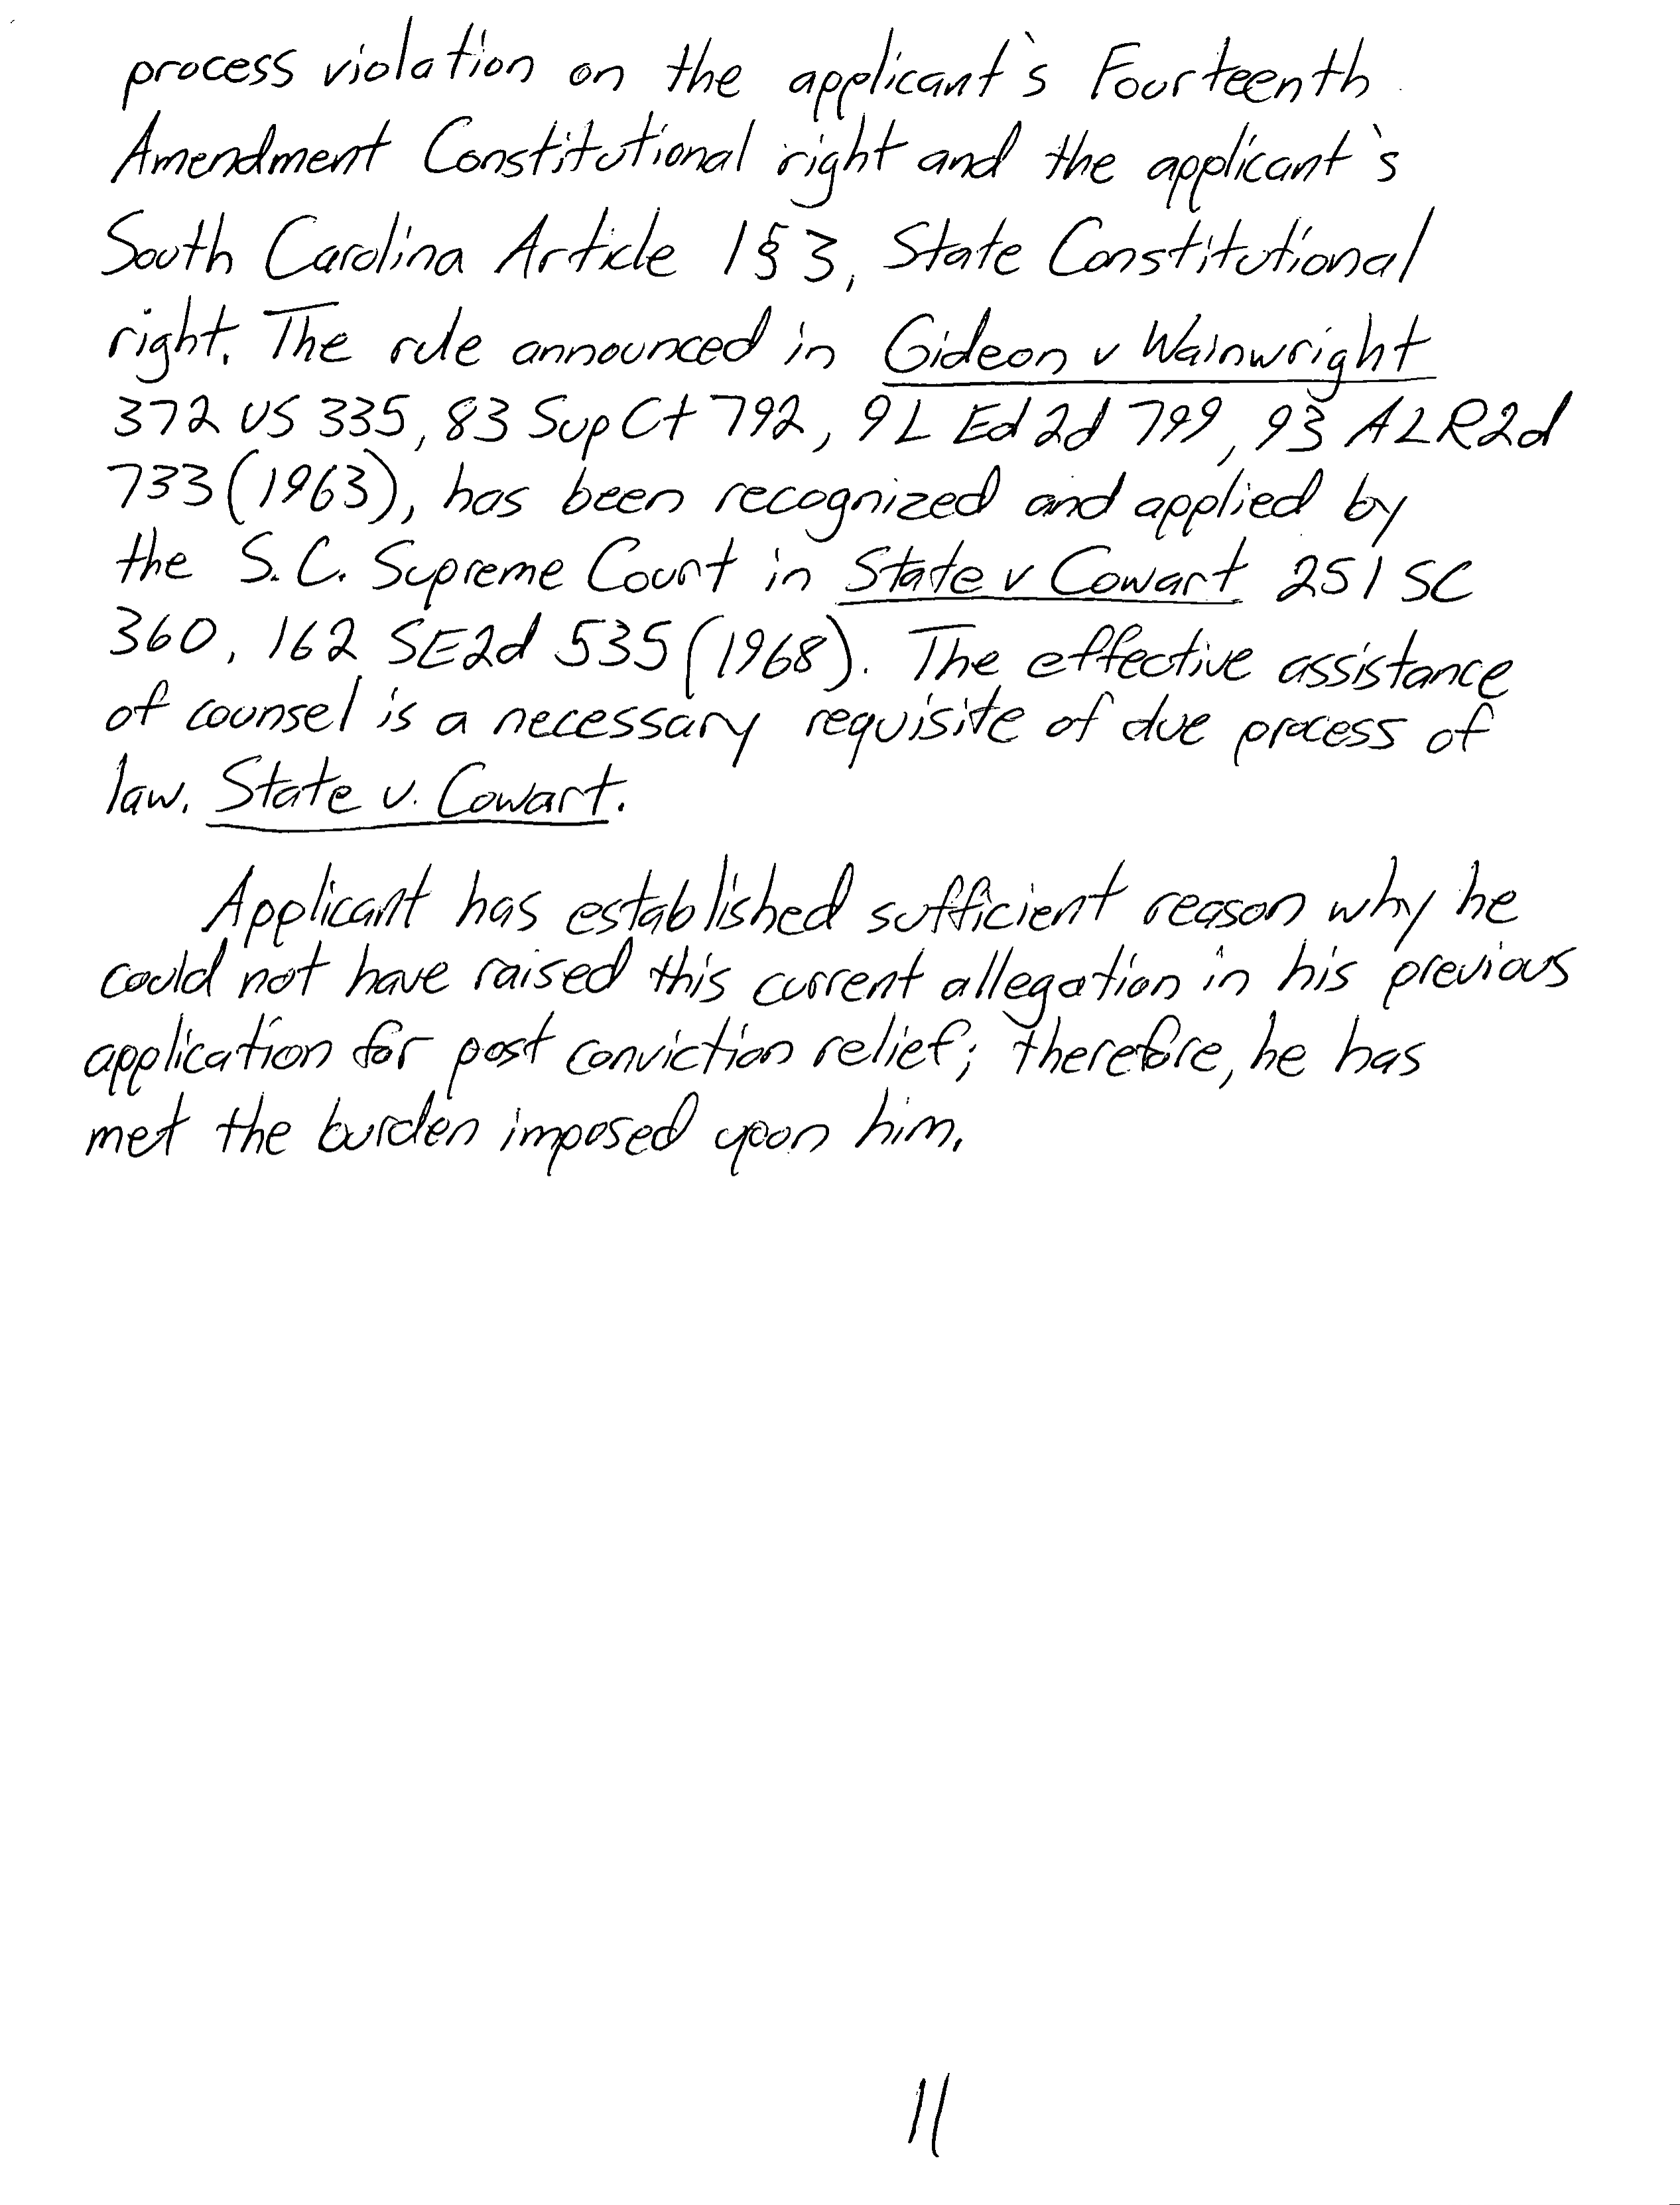 process violation on the applicant's Fourteenth
Amendment Constitutional right and the applicant's
South Carolina Article 1 § 3, State Constitutional
right. The rule announced in Gideon v Wainwright
372 US 335, 83 Sup Ct 792, 9 L Ed 2d 799, 93 ALR2d
733 (1963), has been recognized and applied by
the S.C. Supreme Court in State v Cowart 251 SC
360, 162 SE2d 535 (1968). The effective assistance
of counsel is a necessary requisite of due process of
law. State v. Cowart.
Applicant has established sufficient reason why he
could not have raised this current allegation in his previous
application for post conviction relief; therefore, he has
met the burden imposed upon him.
11